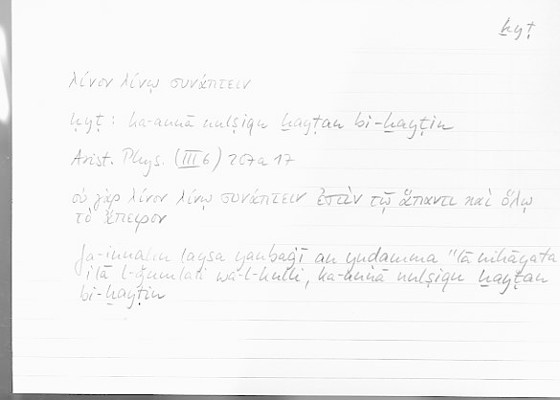 ḫyṭ
λίνον λίνῳ συνάπτειν
ḫyṭ : ka-annā nulṣiqu ḫayṭan bi-ḫayṭin
Arist. Phys. (III 6) 207a 17
οὐ γὰρ λίνον λίνῳ συνάπτειν ἐστὶν τῷ ἅπαντι καὶ ὅλῳ
τὸ ἄπειρον
fa-innahu laysa yanbaġī an yuḍamma "lā nihāyata
ilā l-ǧumlati wa-l-kulli, ka-annā nulṣiqu ḫayṭan
bi-ḫayṭin